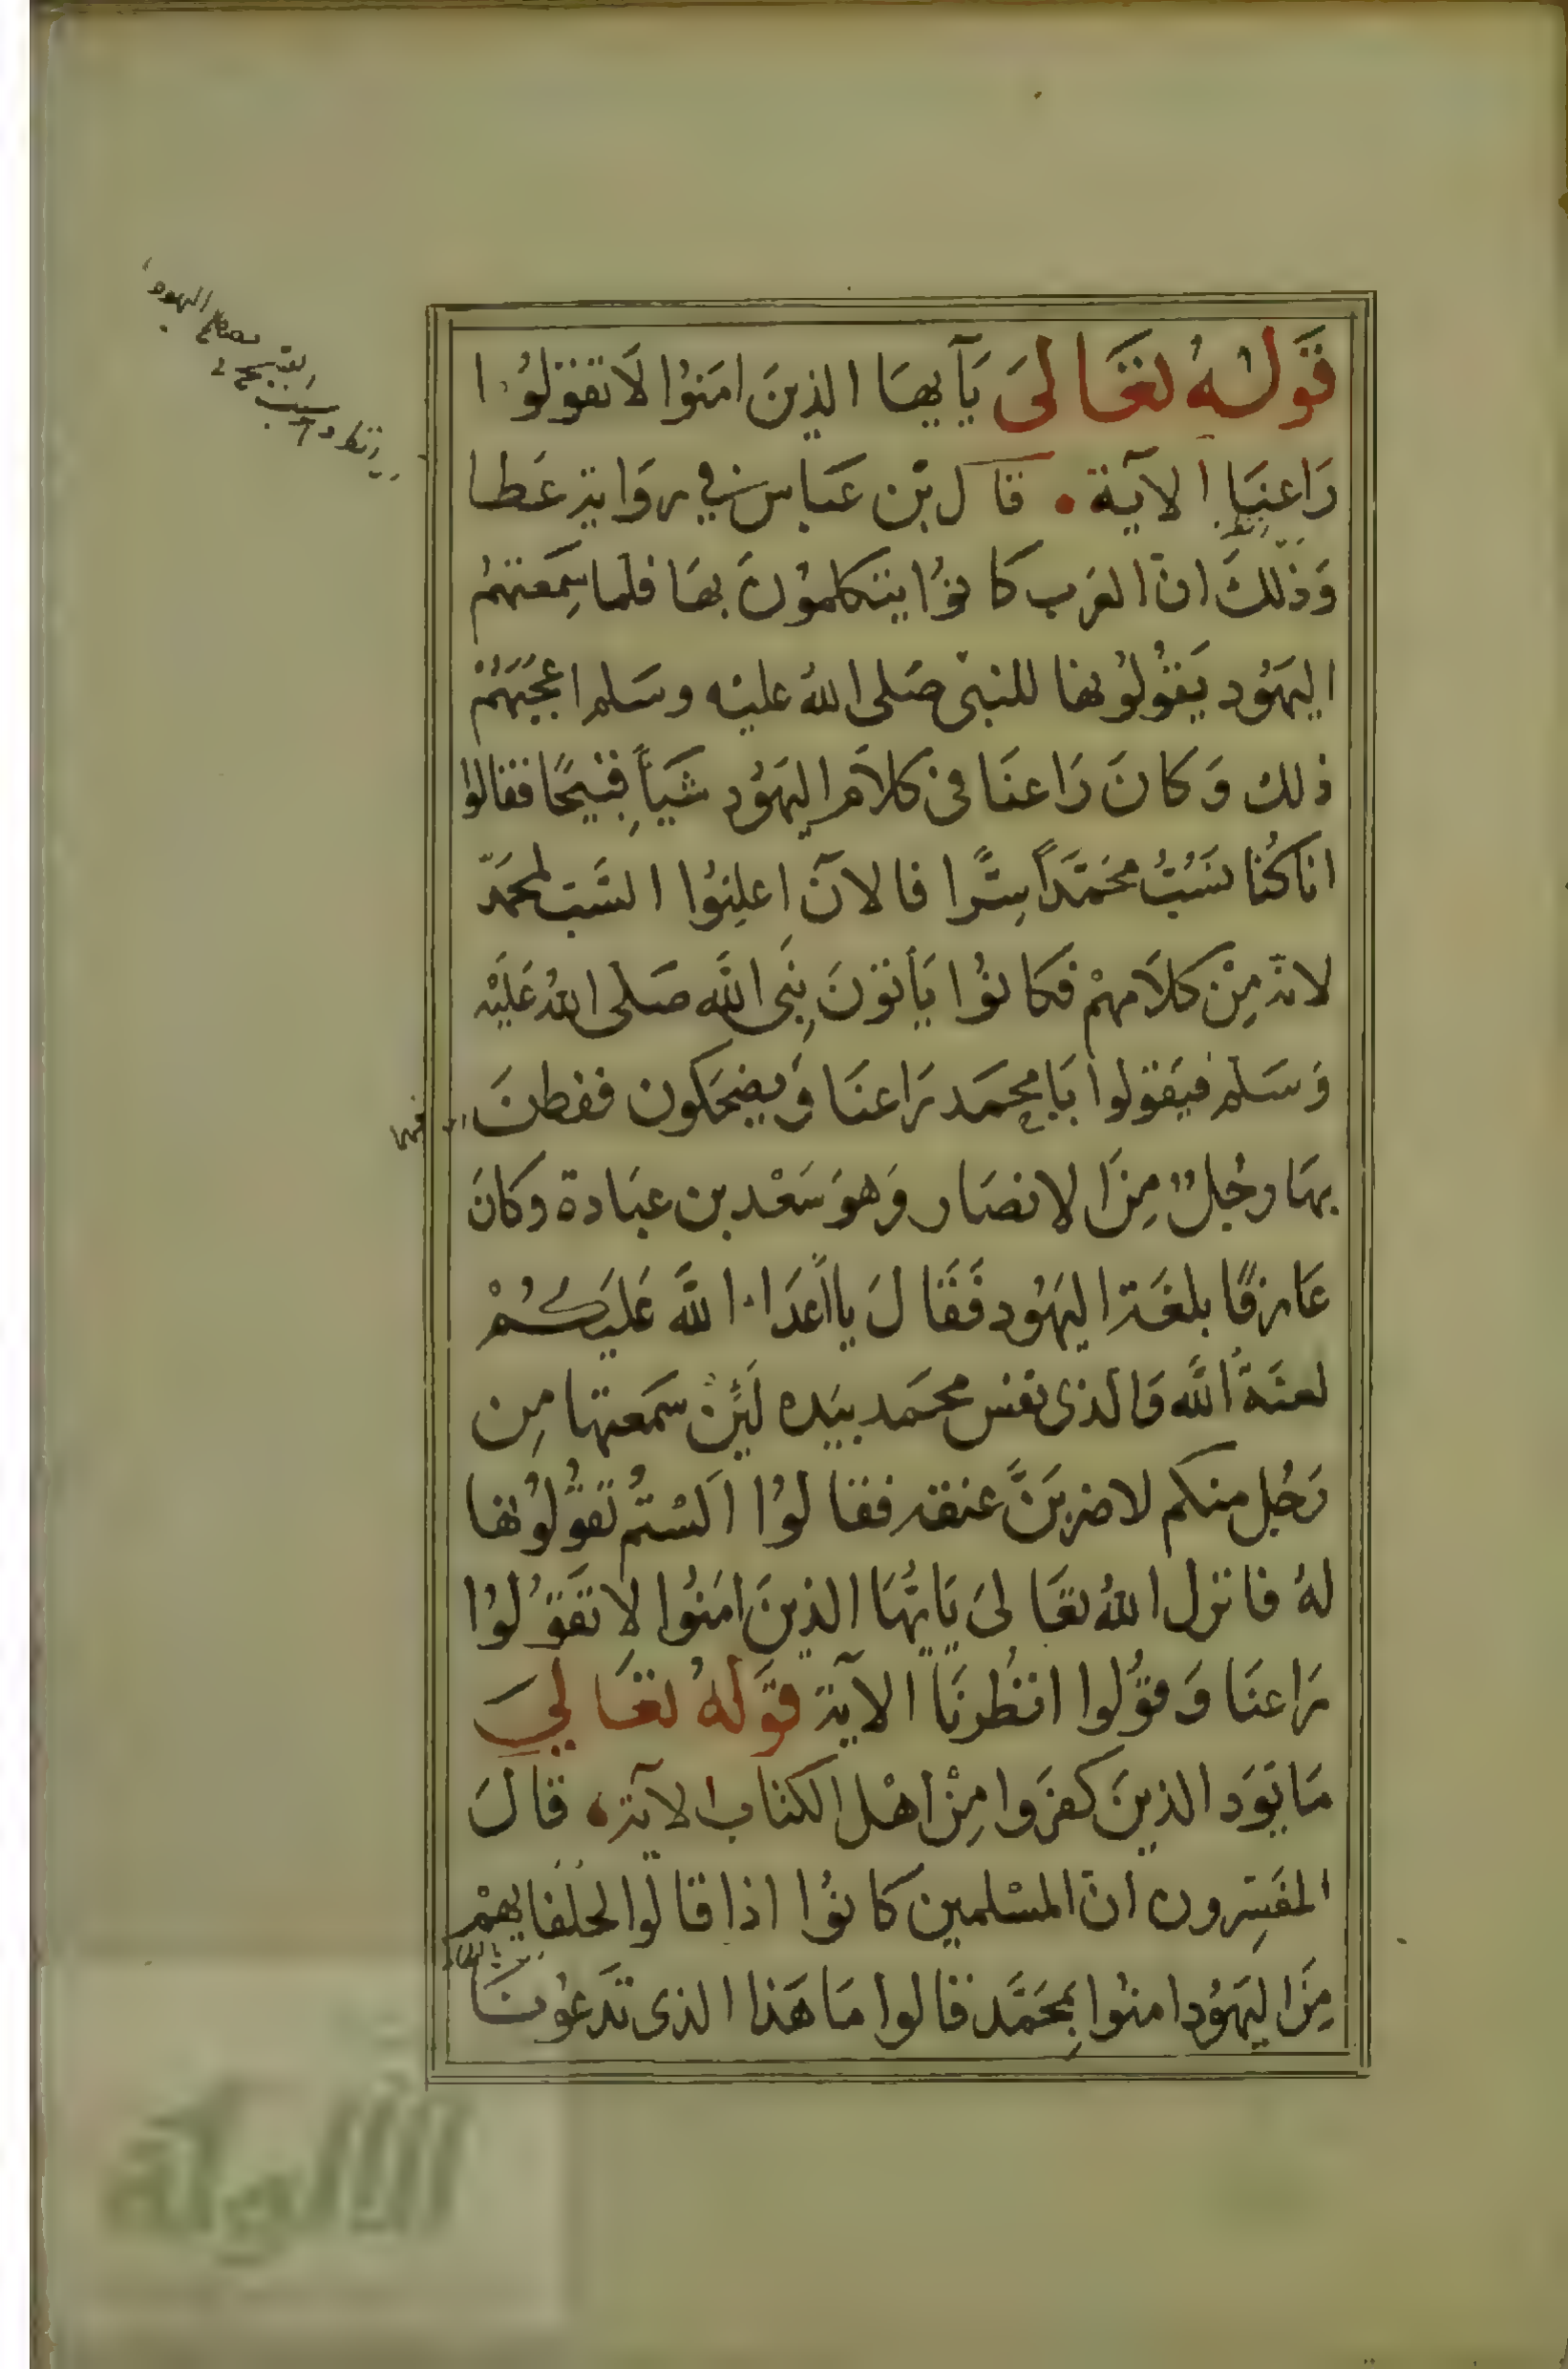 قَوله تعَالىَ يَآ يهَا الذينَ امَنوُا لَا تقوْلوُا
رَاعِنَا الآية • قال بْن عَباس في روَاية عَطا
وَذلكَ انّ العَرب كانوُا يتكلموُنَ بهَا فلما سَمِعتهُمْ
اليهَوُد يَقوُلوُنها للنبىّ صَلى اللهُ عليْه وسَلم اعْجَبَهُمْ
ذلك وَكانَ رَاعنَا فى كلاَم اليهَوُد شَيأً قبيحًا فقالوا
انا كنُا نسَبُّ محَمَّداً سِرًّا فالآنَ اعلِنوُا السَّب لمحمَّد
لانه مِنْ كلاَمهمْ فكانوُا يَأتوُنَ نَبِى الله صَلى اللهُ عَليْه
وَسَلم فيَقوُلوا يَا محمَد رَاعنَا وَيضحَكون ففطنَ
بهَا رجُلٌ مِنَ الانصَار وَهوَ سَعْد بن عبَادة وكانَ
عَارفًا بلغَة اليهَوُد فَقَالَ يا اَعدَاء اللَّه عَليَكُمْ
لعنَةُ اللَّه وَالذى نفس محمَد بيَده لَئِنْ سَمعتها مِن
رَجُل منكم لاضربَنَّ عنقه فقالوُا اَلسْتمُ تَقوُلوُنها
لهُ فانزل اللهُ تعَالىَ يَايُّهَا الذينَ امَنوُا لا تَقوُلوُا
رَاعنَا وَقوُلوا انظُرنَا الآية قوَلهُ تعَاليَ
مَا يَوَد الذينَ كفرَوا مِنْ اهْل الكتاب الآية • قالَ
المفَسِرون انّ المسْلمين كانوُا اذا قالوا لحلَفايِهمْ
مِنَ اليَهوُد امنوُا بمحَمَّد قالوا مَا هَذا الذى تَدعوُننَا